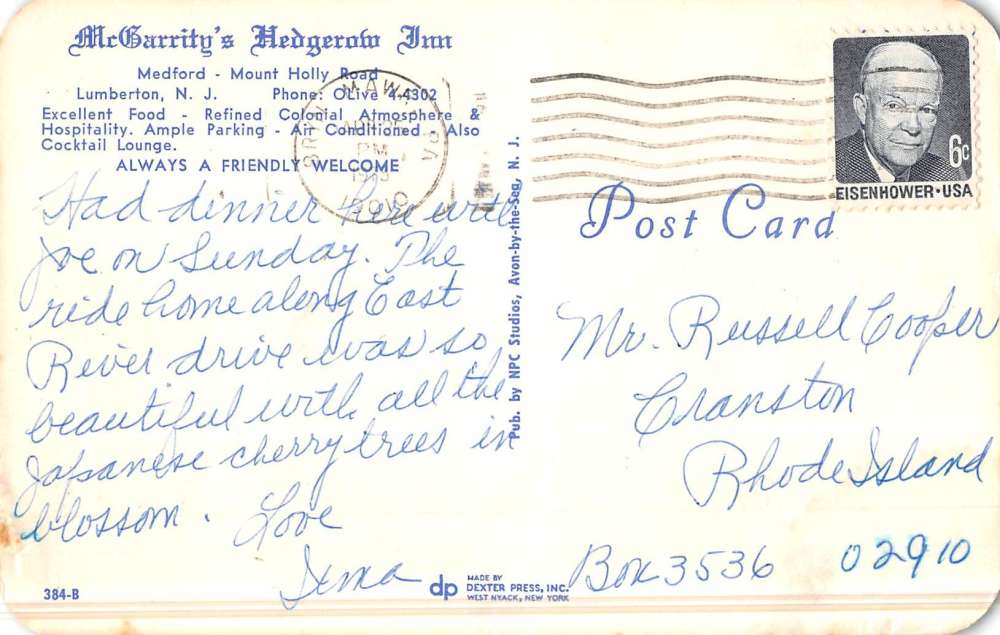 McGarrity's Hedgerow Inn
Medford - Mount Holly Road
Lumberton, N. J. Phone: OLive 4-4302
Excellent Food - Refined Colonial Atmosphere &
Hospitality. Ample Parking - Air Conditioned - Also
Cocktail Lounge.
ALWAYS A FRIENDLY WELCOME
Had dinner here with
Joe on Sunday. The
ride home along East
River drive was so
beautiful with all the
Japanese cherry trees in
blossom. Love
384-B
Pub. by NPC Studios, Avon-by-the-Sea, N. J.
dp MADE BY
DEXTER PRESS, INC.
WEST NYACK, NEW YORK
BRYN MAWR
PM
6c
EISENHOWER·USA
Post Card
Mr. Russell Cooper
Cranston
Rhode Island
Box 3536 02910